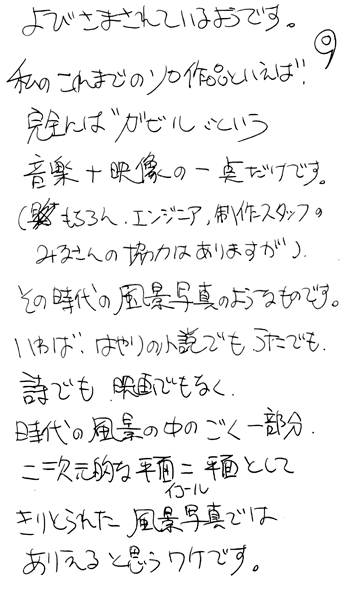 よびさまされているようです。
⑨
私のこれまでのソロ作品といえば、
完全んば“ガゼル”という
音楽+映像の一点だけです。
(もちろん、エンジニア、制作スタッフの
みなさんの協力はありますが)、
その時代の風景写真のようなものです。
いわば、はやりの小説でもうたでも、
詩でも、映画でもなく、
時代の風景の中のごく一部分、
二次元的な平面=平面として
イコール
きりとられた風景写真では
ありえると思うワケです。